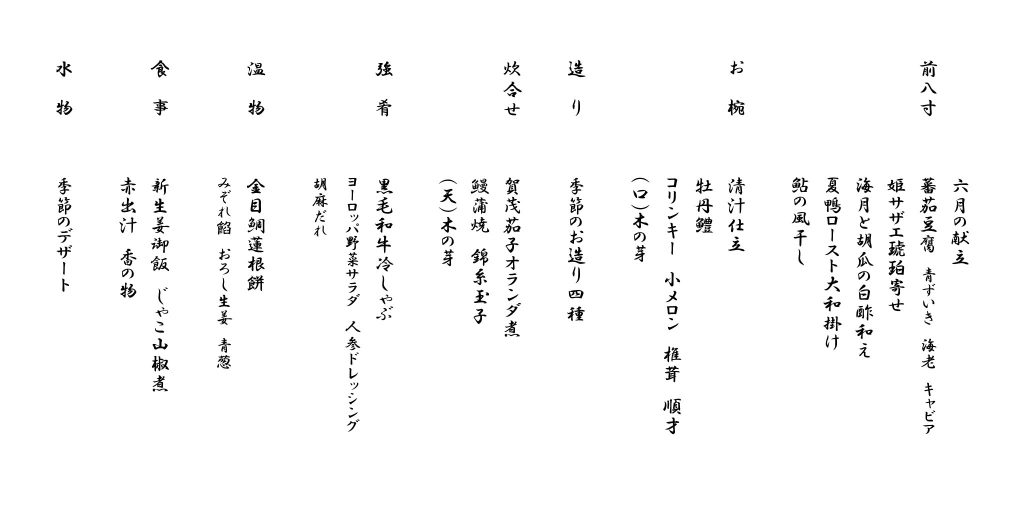 六月の献立
前八寸 蕃茄豆腐 青ずいき 海老 キャビア
姫サザエ琥珀寄せ
海月と胡瓜の白酢和え
夏鴨ロースト大和掛け
鮎の風干し
お椀 清汁仕立
牡丹鱧
コリンキー 小メロン 椎茸 順才
(口)木の芽
造り 季節のお造り四種
炊合せ 賀茂茄子オランダ煮
鰻蒲焼 錦糸玉子
(天)木の芽
強肴 黒毛和牛冷しゃぶ
ヨーロッパ野菜サラダ 人参ドレッシング
胡麻だれ
温物 金目鯛蓮根餅
みぞれ餡 おろし生姜 青葱
食事 新生姜御飯 じゃこ山椒煮
赤出汁 香の物
水物 季節のデザート